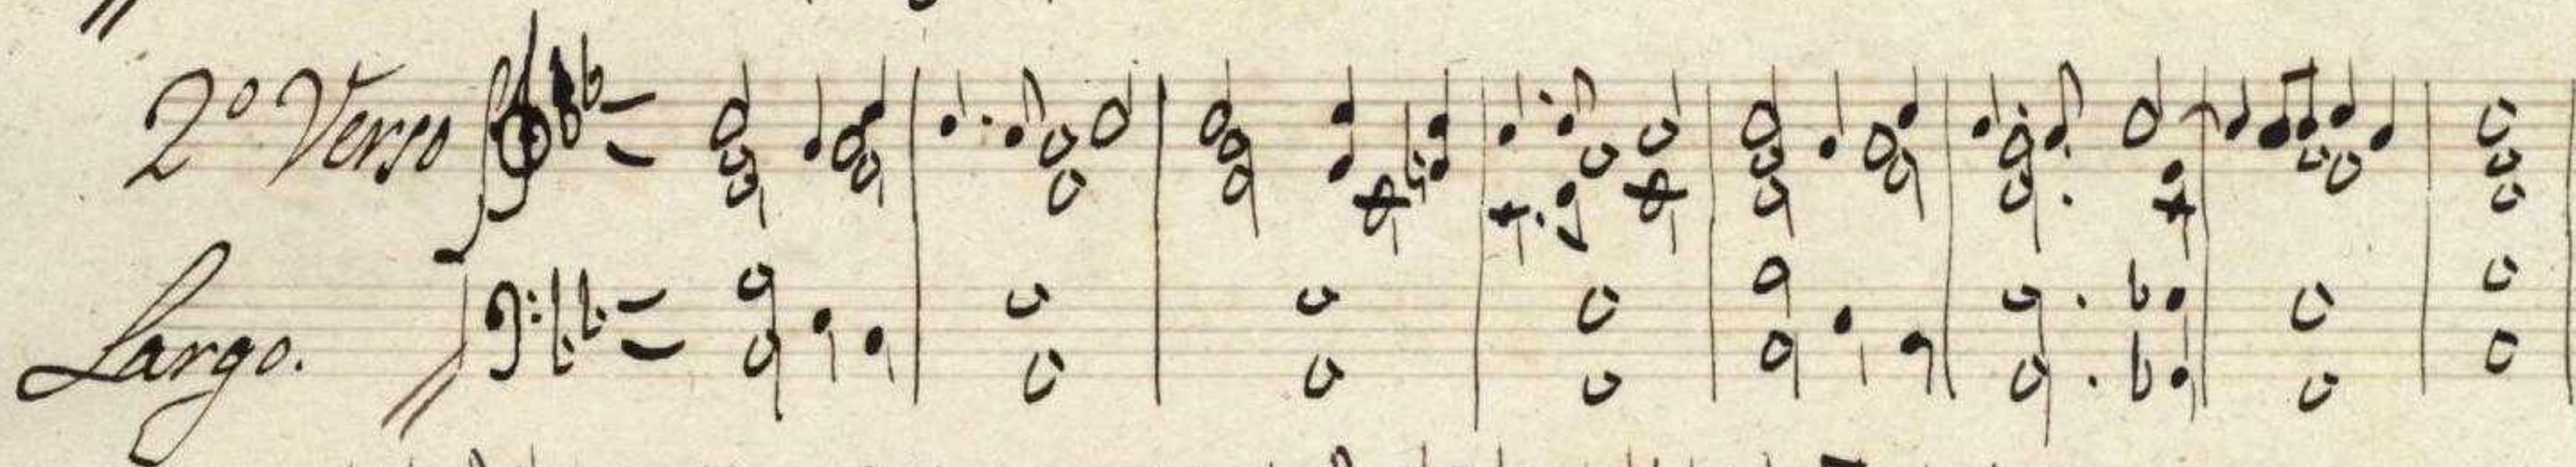 2º Verso
Largo.